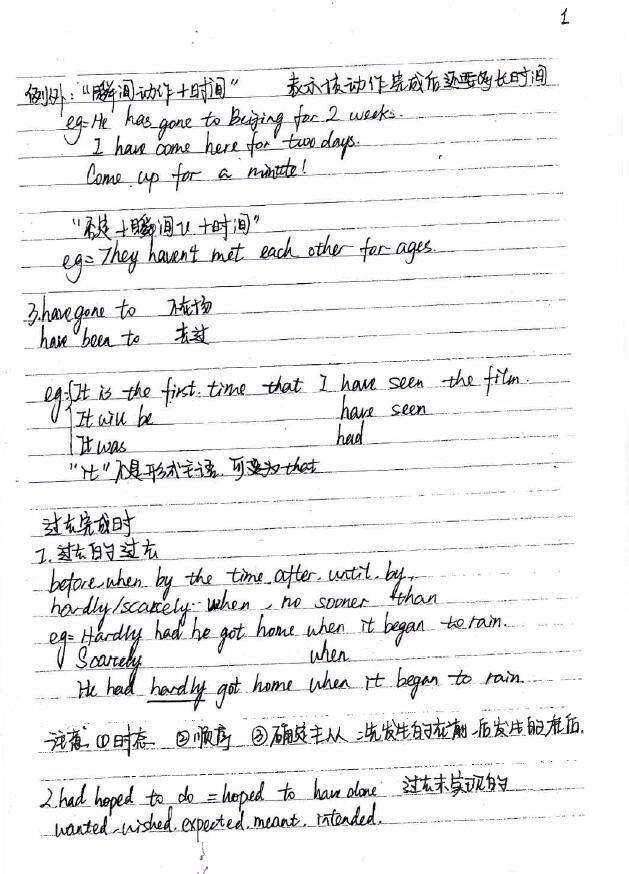 1
例外："瞬间动作+时间" 表示该动作完成后还要多长时间
eg=He has gone to Beijing for 2 weeks.
I have come here for two days.
Come up for a minute!
"否定+瞬间v+时间"
eg=They haven't met each other for ages.
3.have gone to 不在场
have been to 去过
eg=It is the first time that I have seen the film.
It will be have seen
It was had
"It"不是形式主语,可变为that
过去完成时
1.过去的过去
before.when.by the time.after.until.by.
hardly/scarcely…when, no sooner than
eg=Hardly had he got home when it began to rain.
Scarcely when
He had hardly got home when it began to rain.
注意:①时态 ②顺序 ③确定主从:先发生的在前,后发生的在后.
2.had hoped to do = hoped to have done 过去未实现的
wanted.wished.expected.meant.intended.